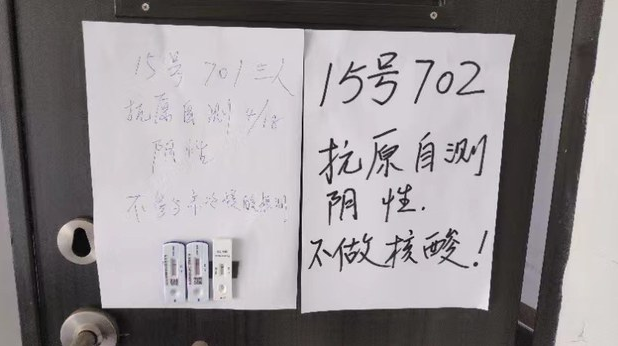 15号 701 三人
抗原自测 4/18
阴性
不参与
核酸
15号702
抗原自测
阴性.
不做核酸!